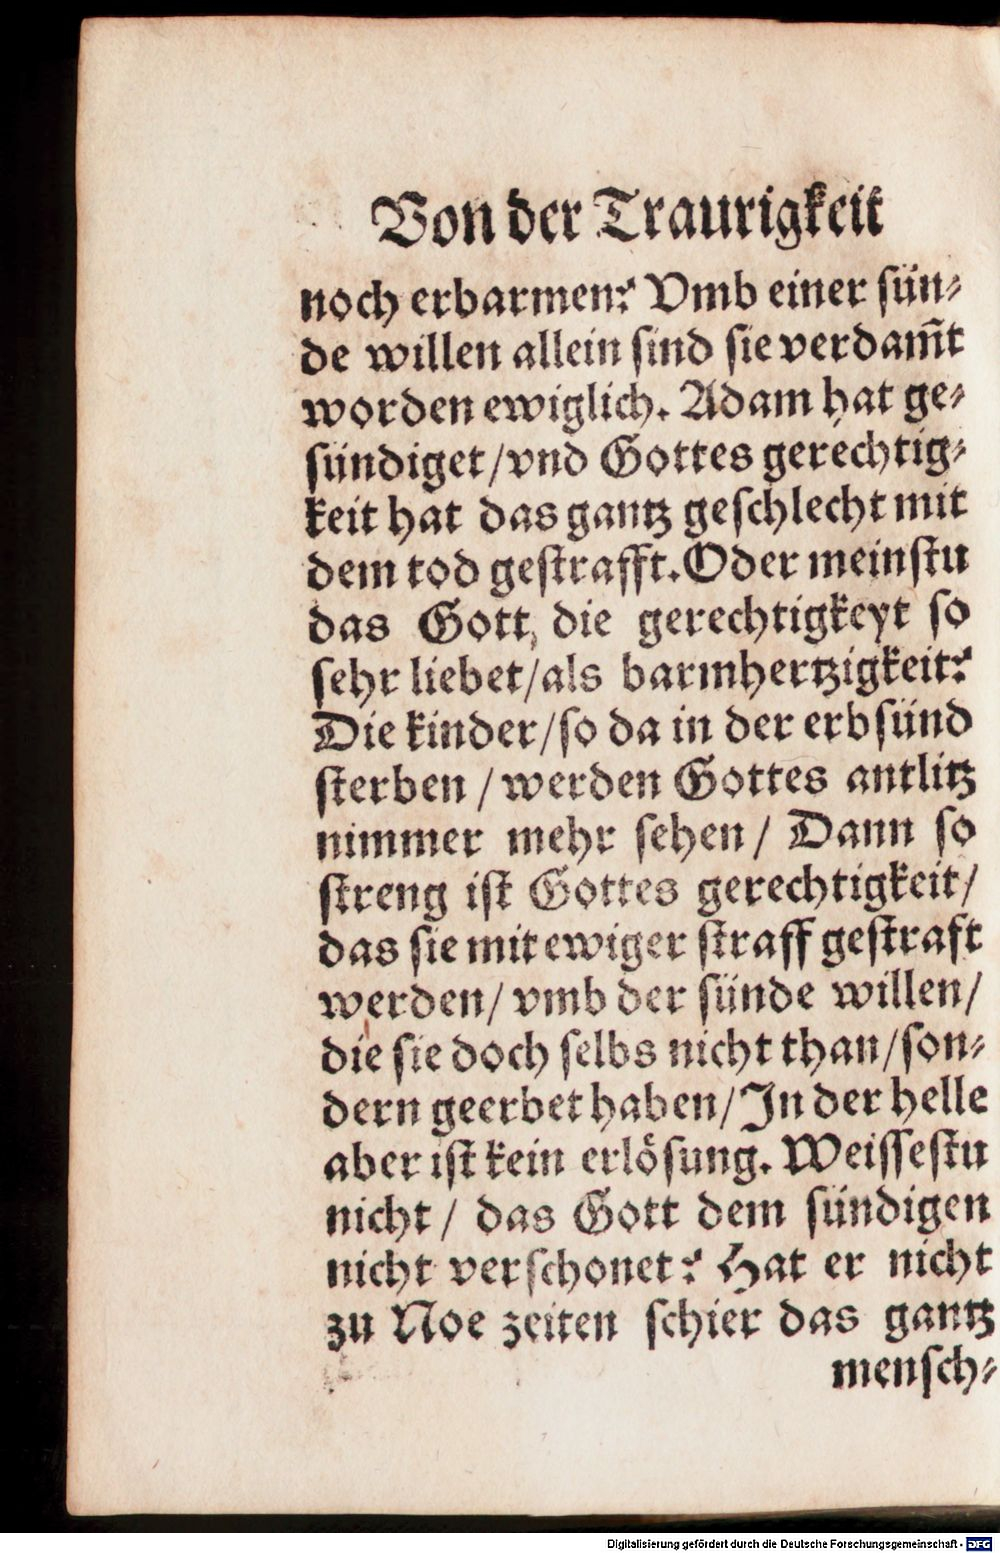 Von der Traurigkeit
noch erbarmen? Vmb einer sün-
de willen allein sind sie verdam̃t
worden ewiglich. Adam hat ge-
sündiget/vnd Gottes gerechtig-
keit hat das gantz geschlecht mit
dem tod gestrafft. Oder meinstu
das Gott, die gerechtigkeyt so
sehr liebet/als barmhertzigkeit?
Die kinder/so da in der erbsünd
sterben / werden Gottes antlitz
nimmer mehr sehen/ Dann so
streng ist Gottes gerechtigkeit/
das sie mit ewiger straff gestraft
werden/ vmb der sünde willen/
die sie doch selbs nicht than/son-
dern geerbet haben/In der helle
aber ist kein erlösung. Weissestu
nicht/ das Gott dem sündigen
nicht verschonet? Hat er nicht
zu Noe zeiten schier das gantz
mensch-
Digitalisierung gefördert durch die Deutsche Forschungsgemeinschaft - DFG